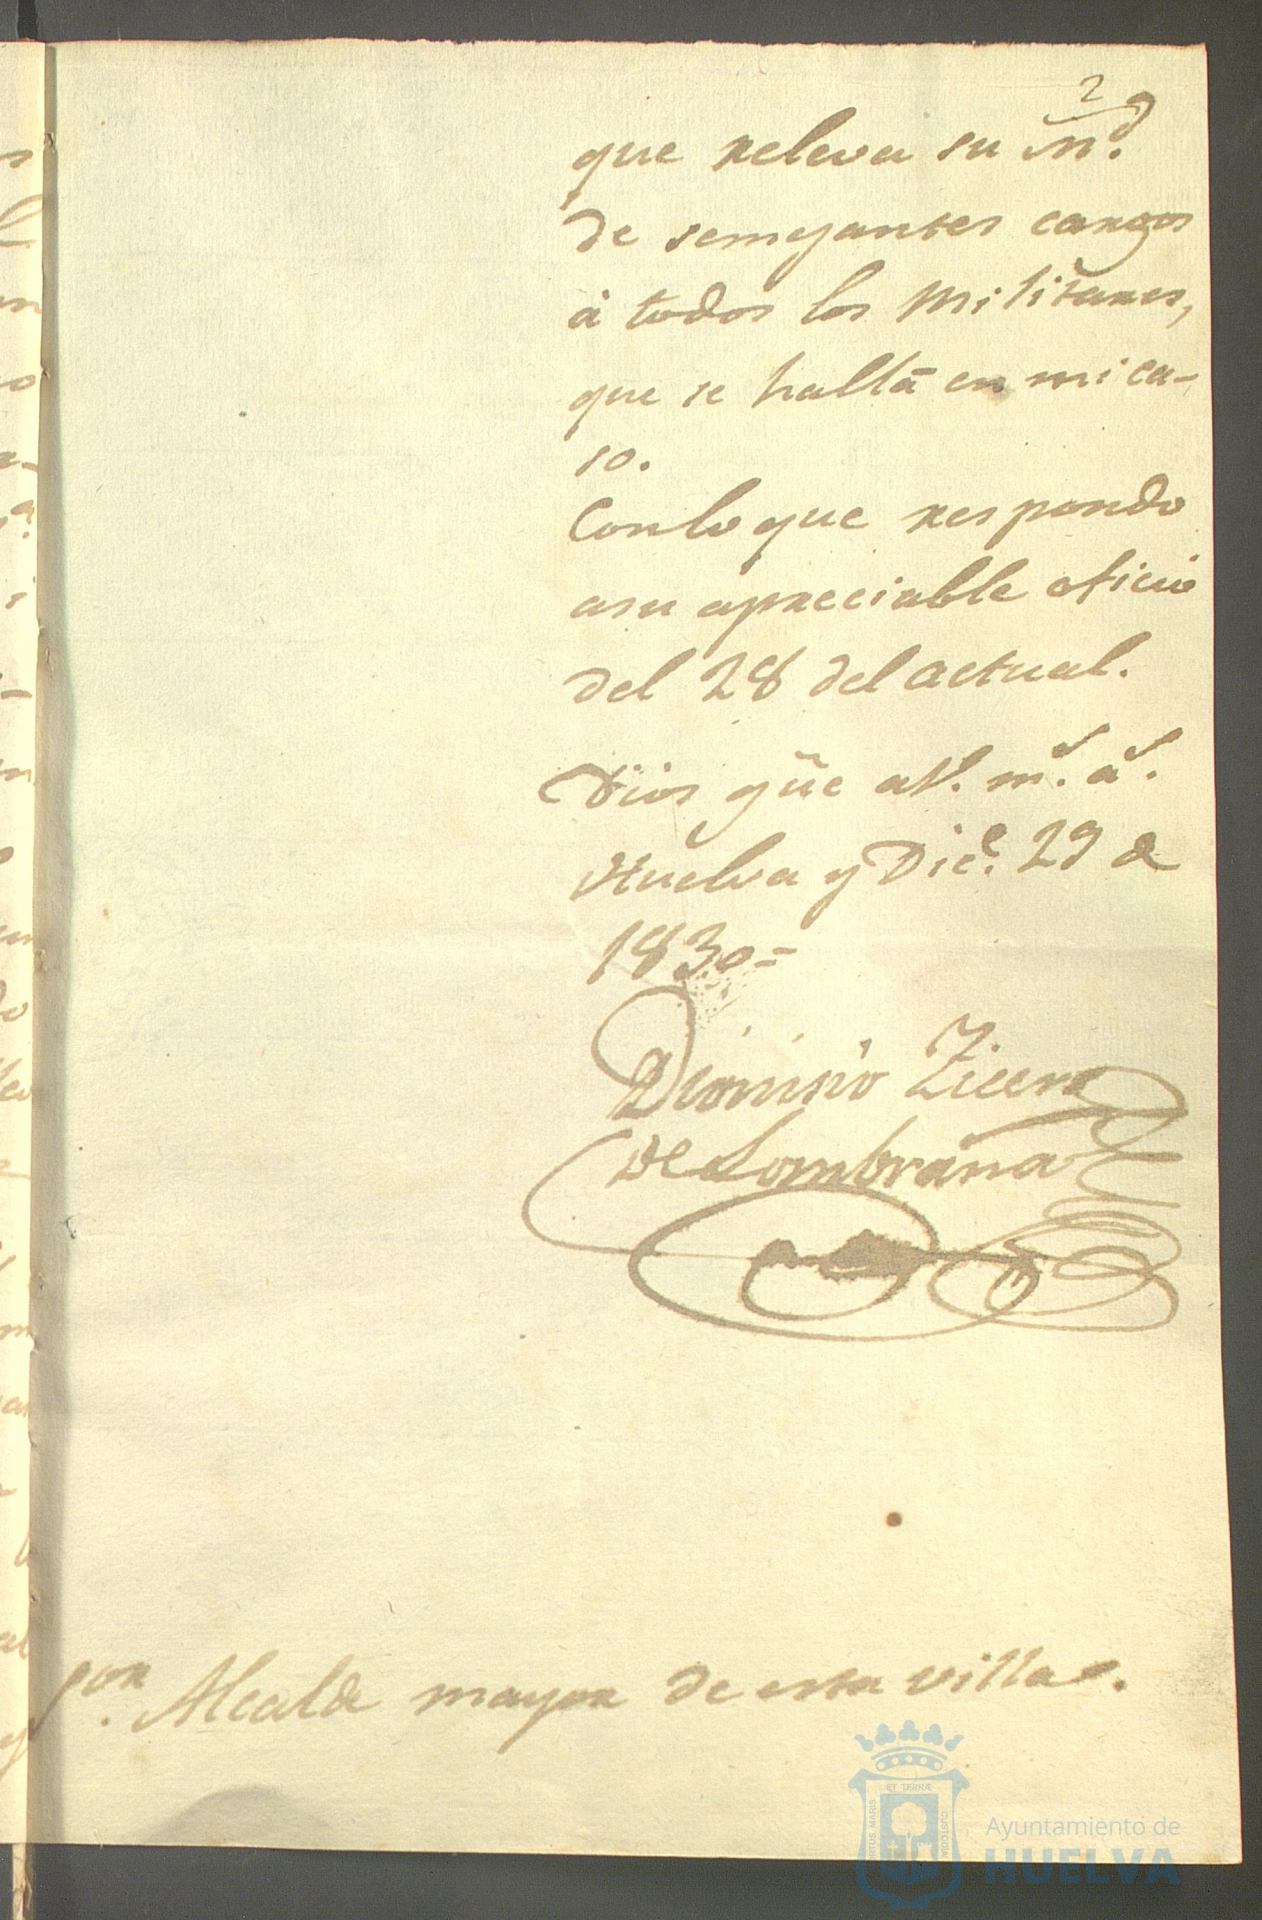 2
que releva su M.d
de semejantes cargos
á todos los Militares,
que se hallã en mi ca-
so.
Con lo que respondo
a su apreciable oficio
del 28 del actual.
Dios gũe a V. m.s a.s
Huelva y Dic.e 29 de
1830=
Dionisio
de Lombraña
S.or Alcalde mayor de esta villa.
ET TERRÆ
PORTUS MARIS
CUSTODIA
Ayuntamiento de
HUELVA